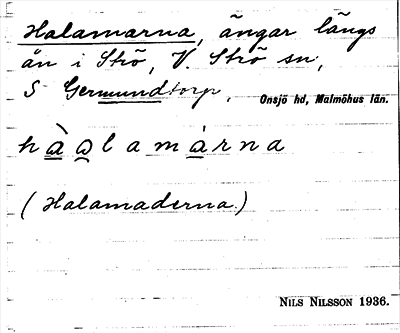 Halamarna, ängar längs
ån i Strö, V. Strö sn,
S Germundtorp, Onsjö hd, Malmöhus län.
hàa̯lamárna
(Halamaderna.)
NILS NILSSON 1936.